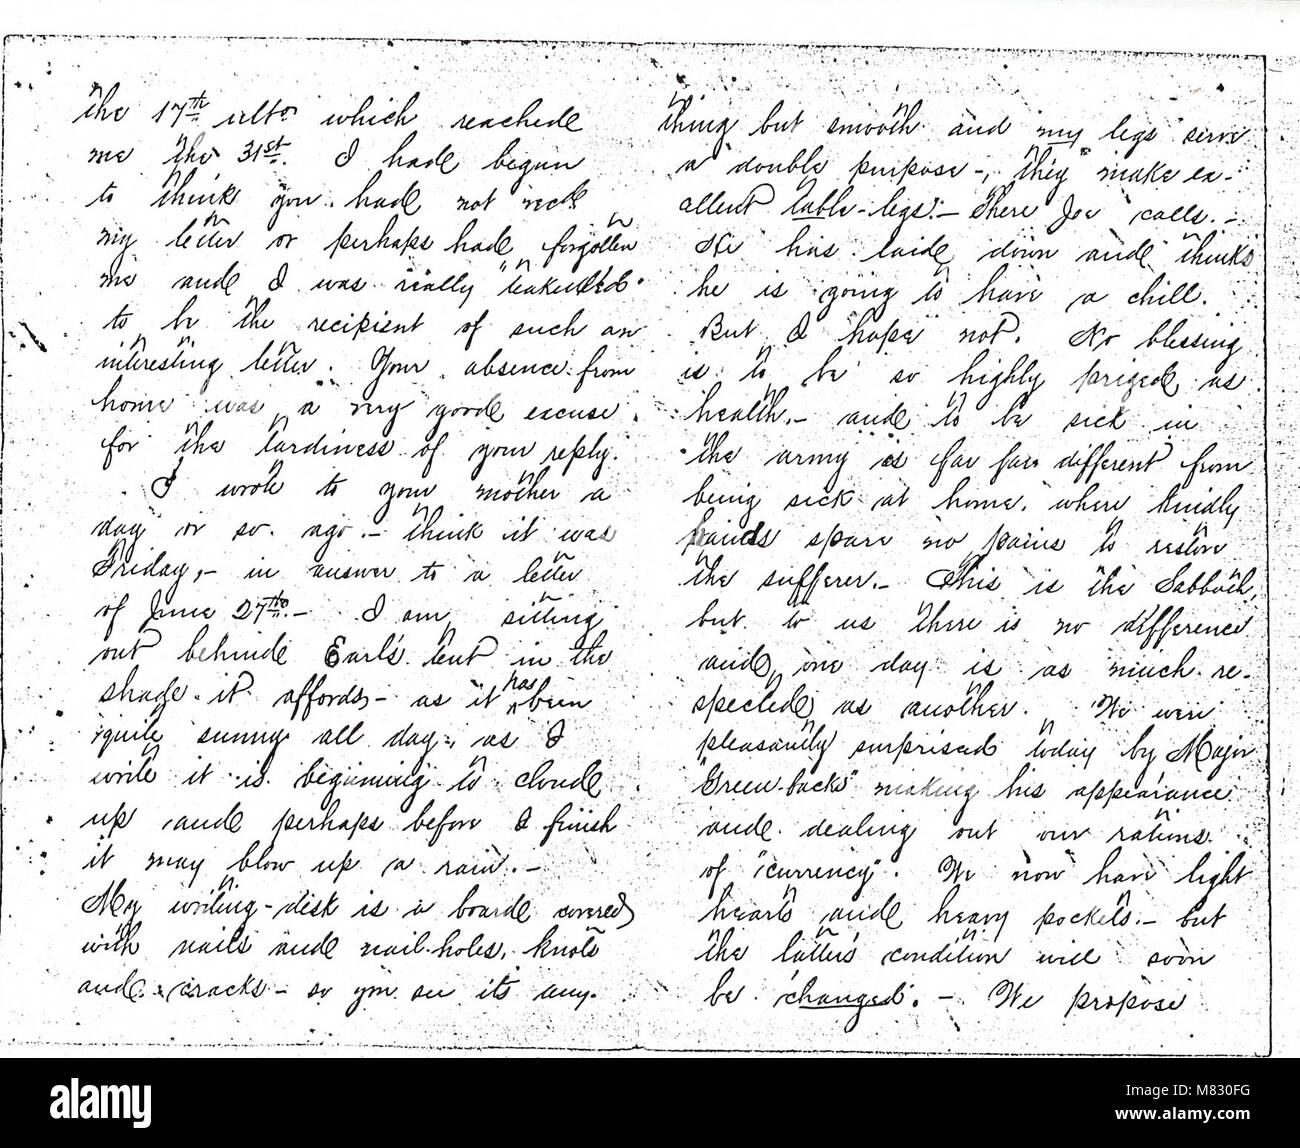 the 17th ulto which reached
me the 31st. I had begun
to think you had not recd
my letter or perhaps had forgotten
me and I was really "tickled"
to be the recipient of such an
interesting letter. Your absence from
home was a very good excuse
for the tardiness of your reply.
I wrote to your mother a
day or so ago - think it was
Friday, - in answer to a letter
of June 27th. - I am sitting
out behind Earl's tent in the
shade it affords - as it has been
quite sunny all day -, as I
write it is beginning to cloud
up and perhaps before I finish
it may blow up a rain. -
My writing-disk is a board covered
with nails and nail-holes, knots
and cracks - so you see its any-
thing but smooth and my legs serve
a double purpose -, they make ex-
cellent table-legs. - There Joe calls. -
He has laid down and thinks
he is going to have a chill.
But I hope not. No blessing
is to be so highly prized as
health. - and to be sick in
the army is far far different from
being sick at home, where kindly
hands spare no pains to restore
the sufferer. - This is the Sabbath,
but to us there is no difference
and one day is as much re-
spected as another. We were
pleasantly surprised today by Major
"Green-backs" making his appearance
and dealing out our rations
of "currency". We now have light
hearts and heavy pockets. - but
the latter's condition will soon
be changed. - We propose
alamy
Image ID: M830FG
www.alamy.com